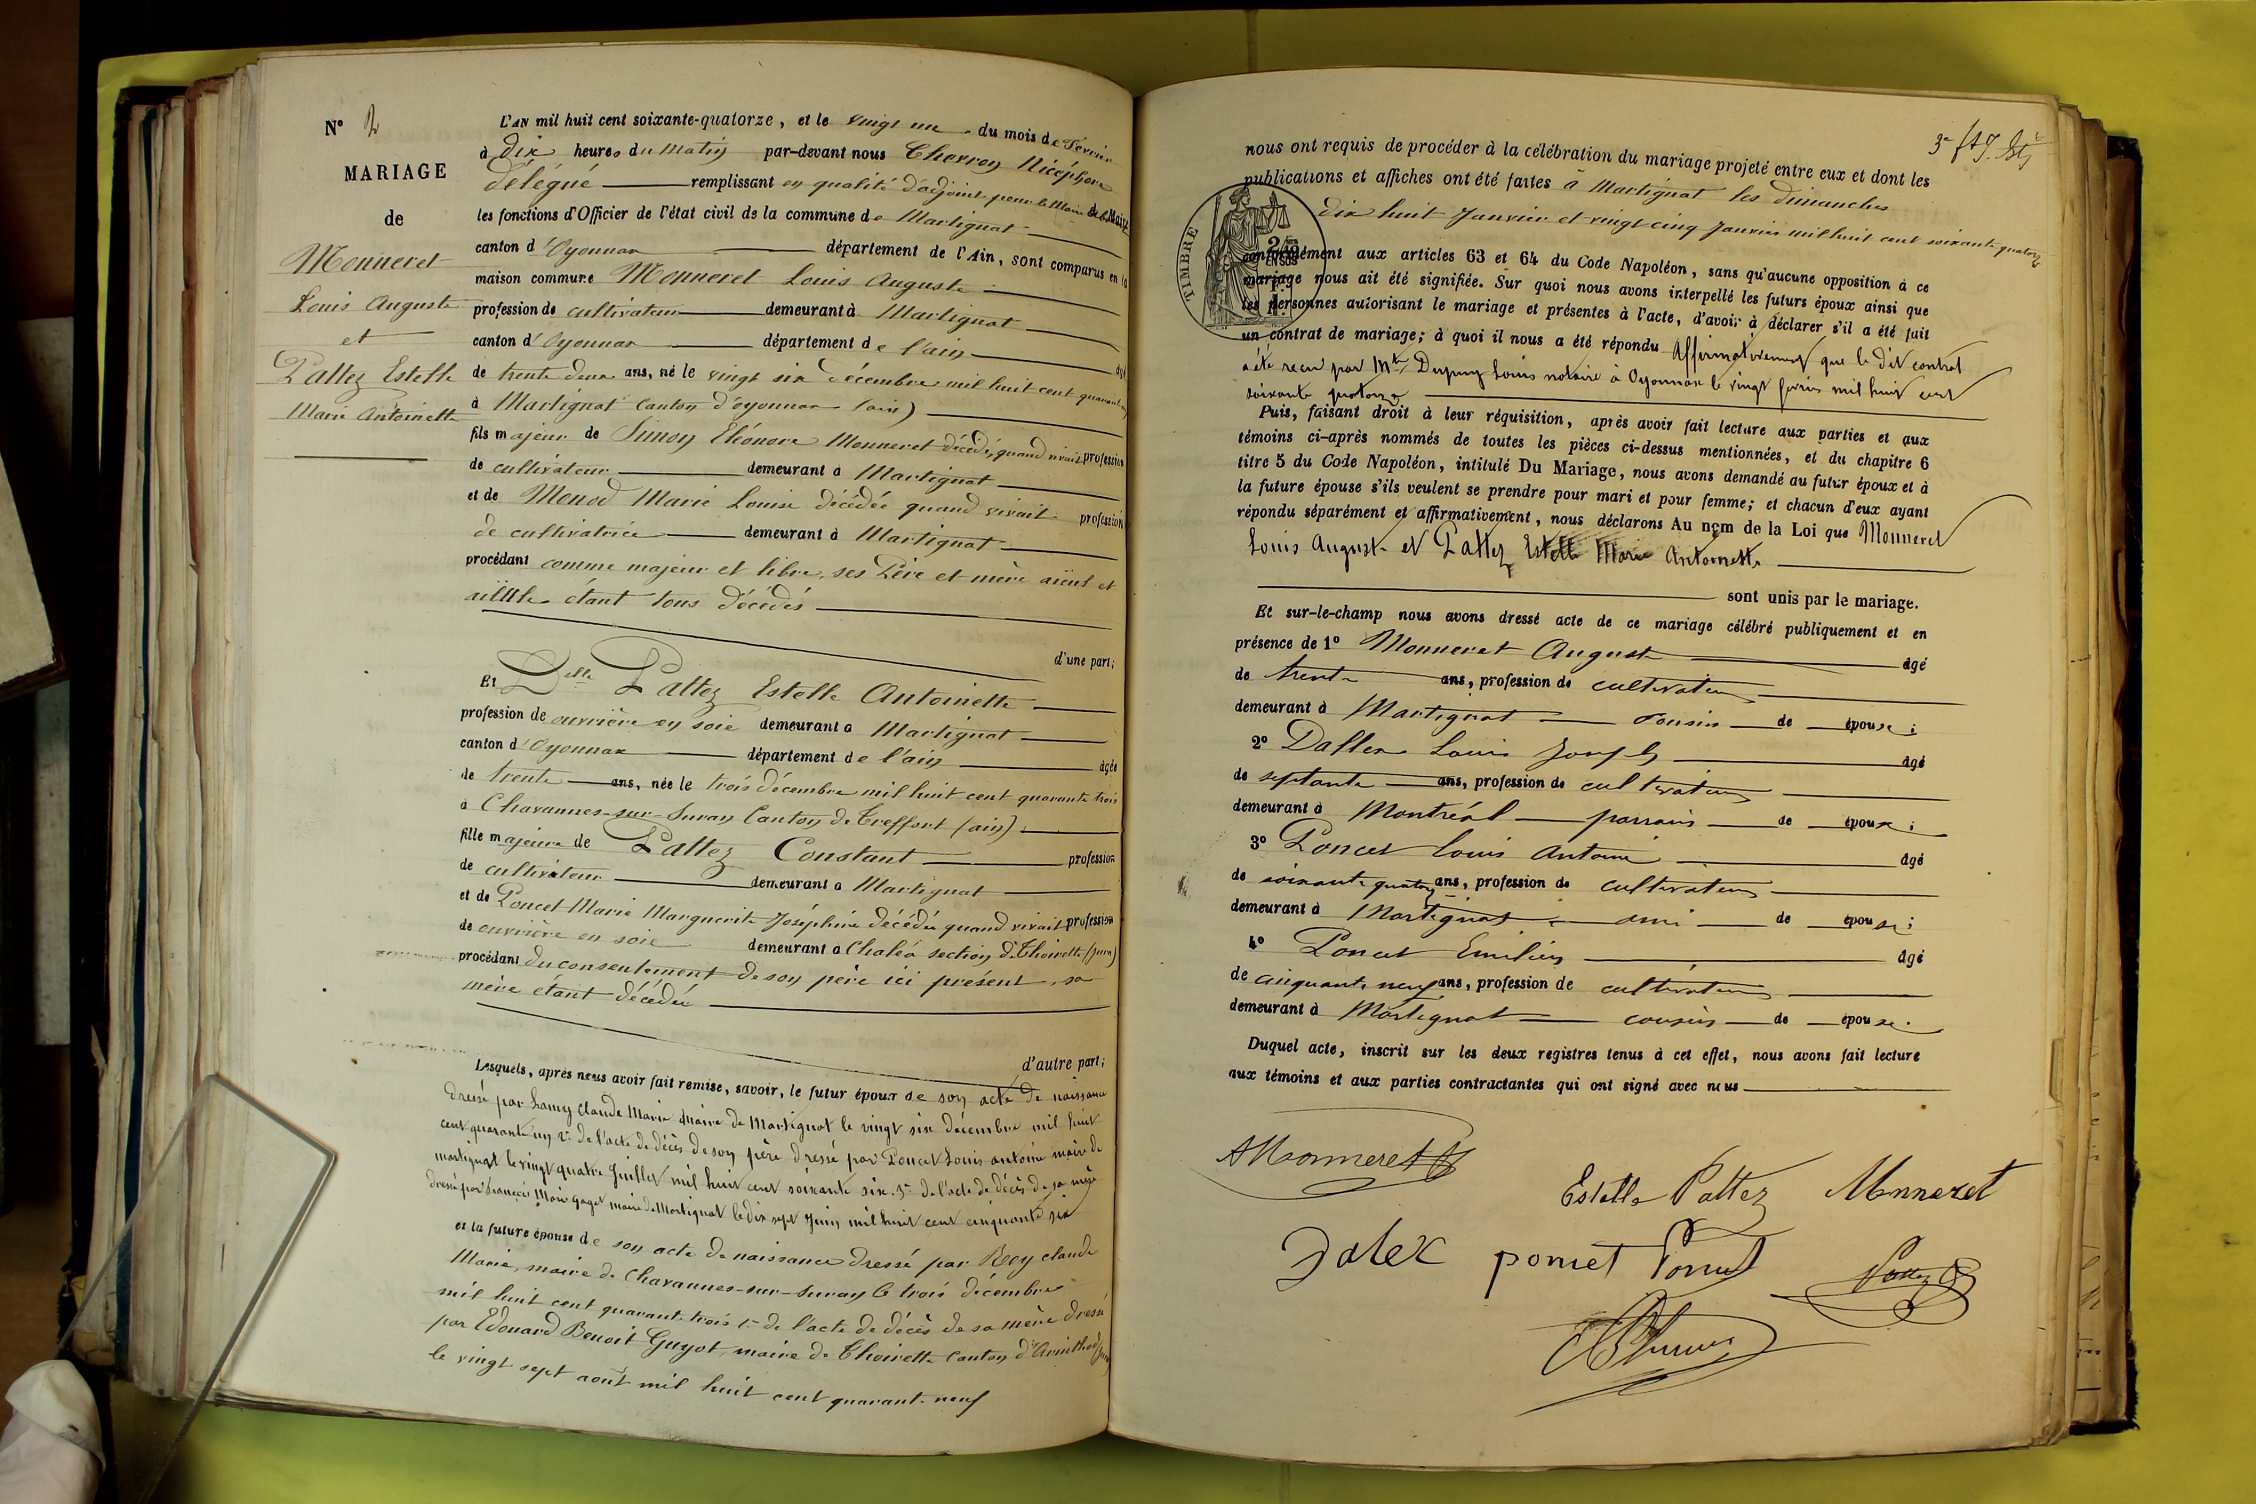 N° 2
MARIAGE
de
Monneret
Louis Auguste
et
Pattez Estelle
Marie Antoinette
L'AN mil huit cent soixante-quatorze, et le vingt un du mois de Février
à dix heures du matin par-devant nous Chevron Nicéphore
délégué remplissant en qualité d'adjoint pour le Maire de la Mairie
les fonctions d'Officier de l'état civil de la commune de Martignat
canton d'Oyonnax département de l'Ain, sont comparus en la
maison commune Monneret Louis Auguste
profession de cultivateur demeurant à Martignat
canton d'Oyonnax département de l'ain âgé
de trente deux ans, né le vingt six décembre mil huit cent quarante un
à Martignat canton d'oyonnax (ain)
fils majeur de Simon Eléonore Monneret décédé, quand vivait profession
de cultivateur demeurant à Martignat
et de Monod Marie Louise décédée quand vivait profession
de cultivatrice demeurant à Martignat
procédant comme majeur et libre, ses Père et mère aïeul et
aïllle étant tous décédés
d'une part;
Et Delle Pattez Estelle Antoinette
profession de ouvrière en soie demeurant à Martignat
canton d'Oyonnax département de l'ain âgée
de trente ans, née le trois décembre mil huit cent quarante trois
à Chavannes-sur-Suran Canton de Treffort (ain)
fille majeure de Pattez Constant profession
de cultivateur demeurant à Martignat
et de Poncet Marie Marguerite Joséphine décédée quand vivait profession
de ouvrière en soie demeurant à Chaléa section de Thoirette (Jura)
procédant du consentement de son père ici présent, sa
mère étant décédée
d'autre part;
Lesquels, après nous avoir fait remise, savoir, le futur époux de son acte de naissance
dressé par Lamy Claude Marie Maire de Martignat le vingt six décembre mil huit
cent quarante un 2° de l'acte de décès de son père dressé par Poncet Louis antoine maire de
martignat le vingt quatre Juillet mil huit cent soixante six. 3° de l'acte de décès de sa mère
dressé par François Marie Gaget maire de Martignat le dix sept Juin mil huit cent cinquante six
et la future épouse de son acte de naissance dressé par Rey claude
Marie, maire de Chavannes-sur-Suran le trois décembre
mil huit cent quarante trois de l'acte de décès de sa mère dressé
par Edouard Benoit Guyot, maire de Thoirette Canton d'Arinthod (Jura)
le vingt sept août mil huit cent quarante neuf
nous ont requis de procéder à la célébration du mariage projeté entre eux et dont les
publications et affiches ont été faites à Martignat les dimanches
dix huit Janvier et vingt cinq Janvier mil huit cent soixante quatorze
TIMBRE
conformément aux articles 63 et 64 du Code Napoléon, sans qu'aucune opposition à ce
mariage nous ait été signifiée. Sur quoi nous avons interpellé les futurs époux ainsi que
les personnes autorisant le mariage et présentes à l'acte, d'avoir à déclarer s'il a été fait
un contrat de mariage; à quoi il nous a été répondu Affirmativement que le dit contrat
a été reçu par Mtre Dupuy Louis notaire à Oyonnax le vingt fevrier mil huit cent
soixante quatorze
Puis, faisant droit à leur réquisition, après avoir fait lecture aux parties et aux
témoins ci-après nommés de toutes les pièces ci-dessus mentionnées, et du chapitre 6
titre 5 du Code Napoléon, intitulé Du Mariage, nous avons demandé au futur époux et à
la future épouse s'ils veulent se prendre pour mari et pour femme; et chacun d'eux ayant
répondu séparément et affirmativement, nous déclarons Au nom de la Loi que Monneret
Louis Auguste et Pattez Estelle Marie Antoinette
sont unis par le mariage.
Et sur-le-champ nous avons dressé acte de ce mariage célébré publiquement et en
présence de 1° Monneret Auguste âgé
de trente ans, profession de cultivateur
demeurant à Martignat cousin de épouse;
2° Dallex Louis Joseph âgé
de septante ans, profession de cultivateur
demeurant à Montréal parrain de époux;
3° Poncet Louis Antoine âgé
de soixante quatorze ans, profession de cultivateur
demeurant à Martignat ami de épouse;
4° Poncet Emilien âgé
de cinquante neuf ans, profession de cultivateur
demeurant à Martignat cousin de épouse.
Duquel acte, inscrit sur les deux registres tenus à cet effet, nous avons fait lecture
aux témoins et aux parties contractantes qui ont signé avec nous
AMonneret
Estelle Pattez Monneret
Dalex poncet Poncet Pattez